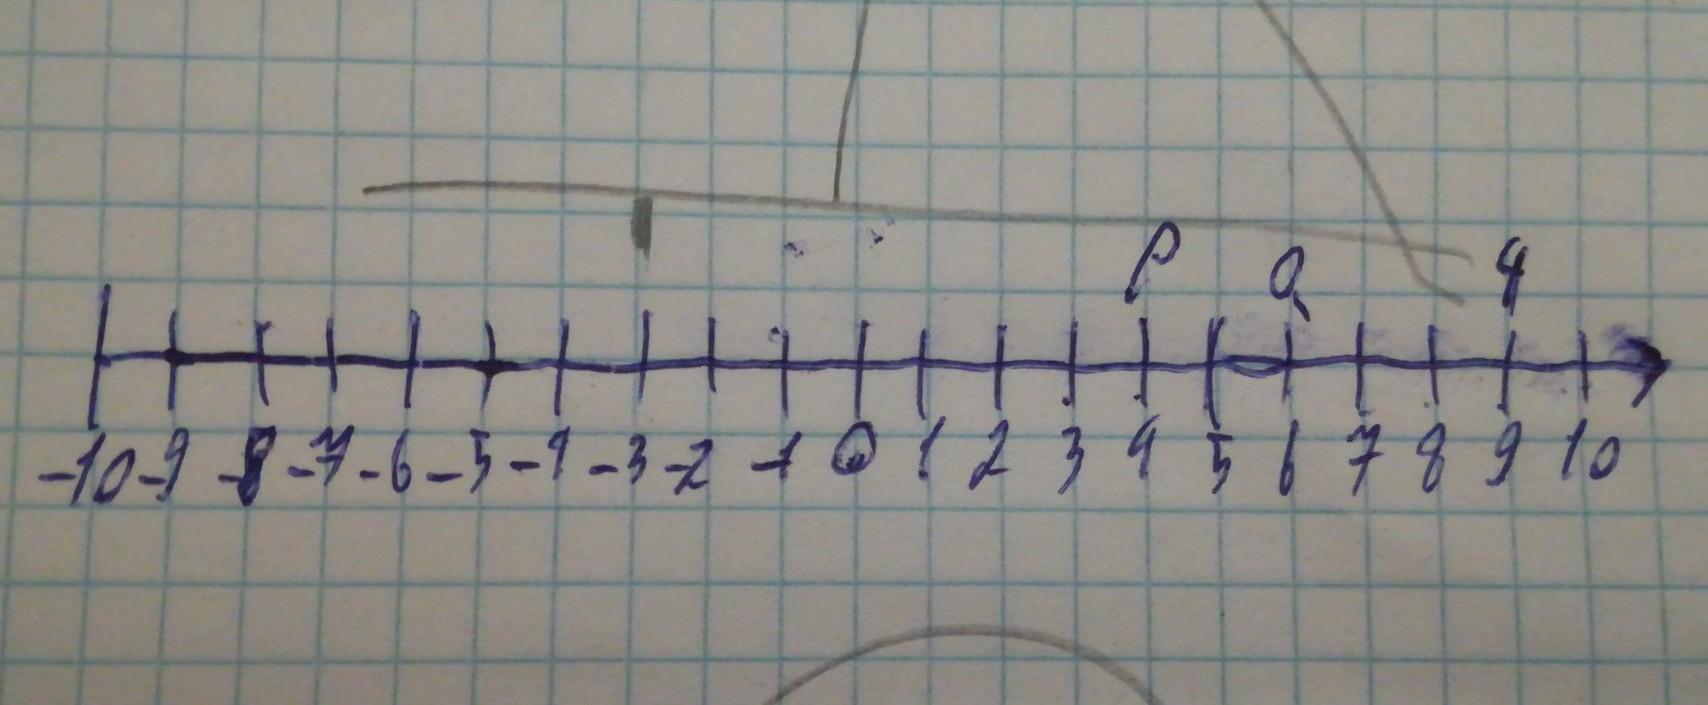 P Q 9
-10 -9 -8 -7 -6 -5 -4 -3 -2 -1 0 1 2 3 4 5 6 7 8 9 10